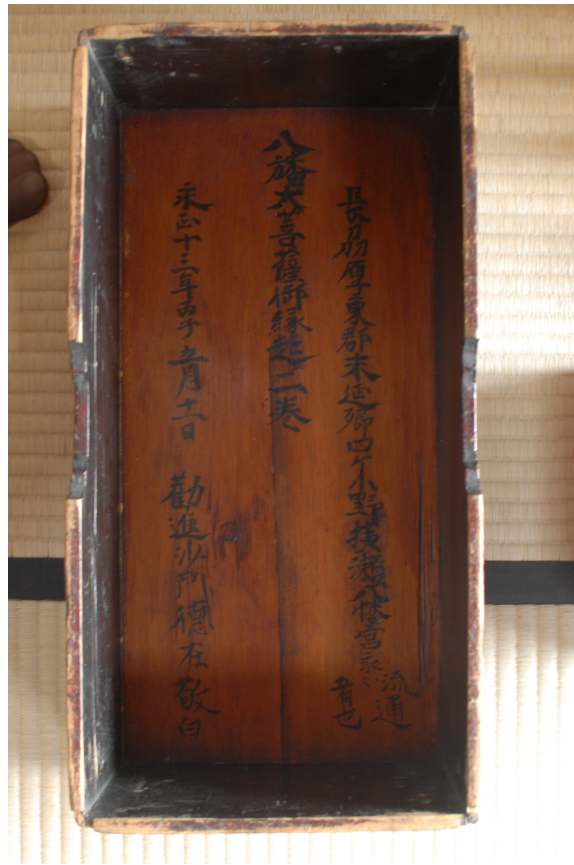 長州厚東郡末延郷四ケ小野横瀬八幡宮永〻流通
者也
八幡大菩薩御縁起二巻
永正十三年丙子五月十一日 勧進沙門徳存敬白